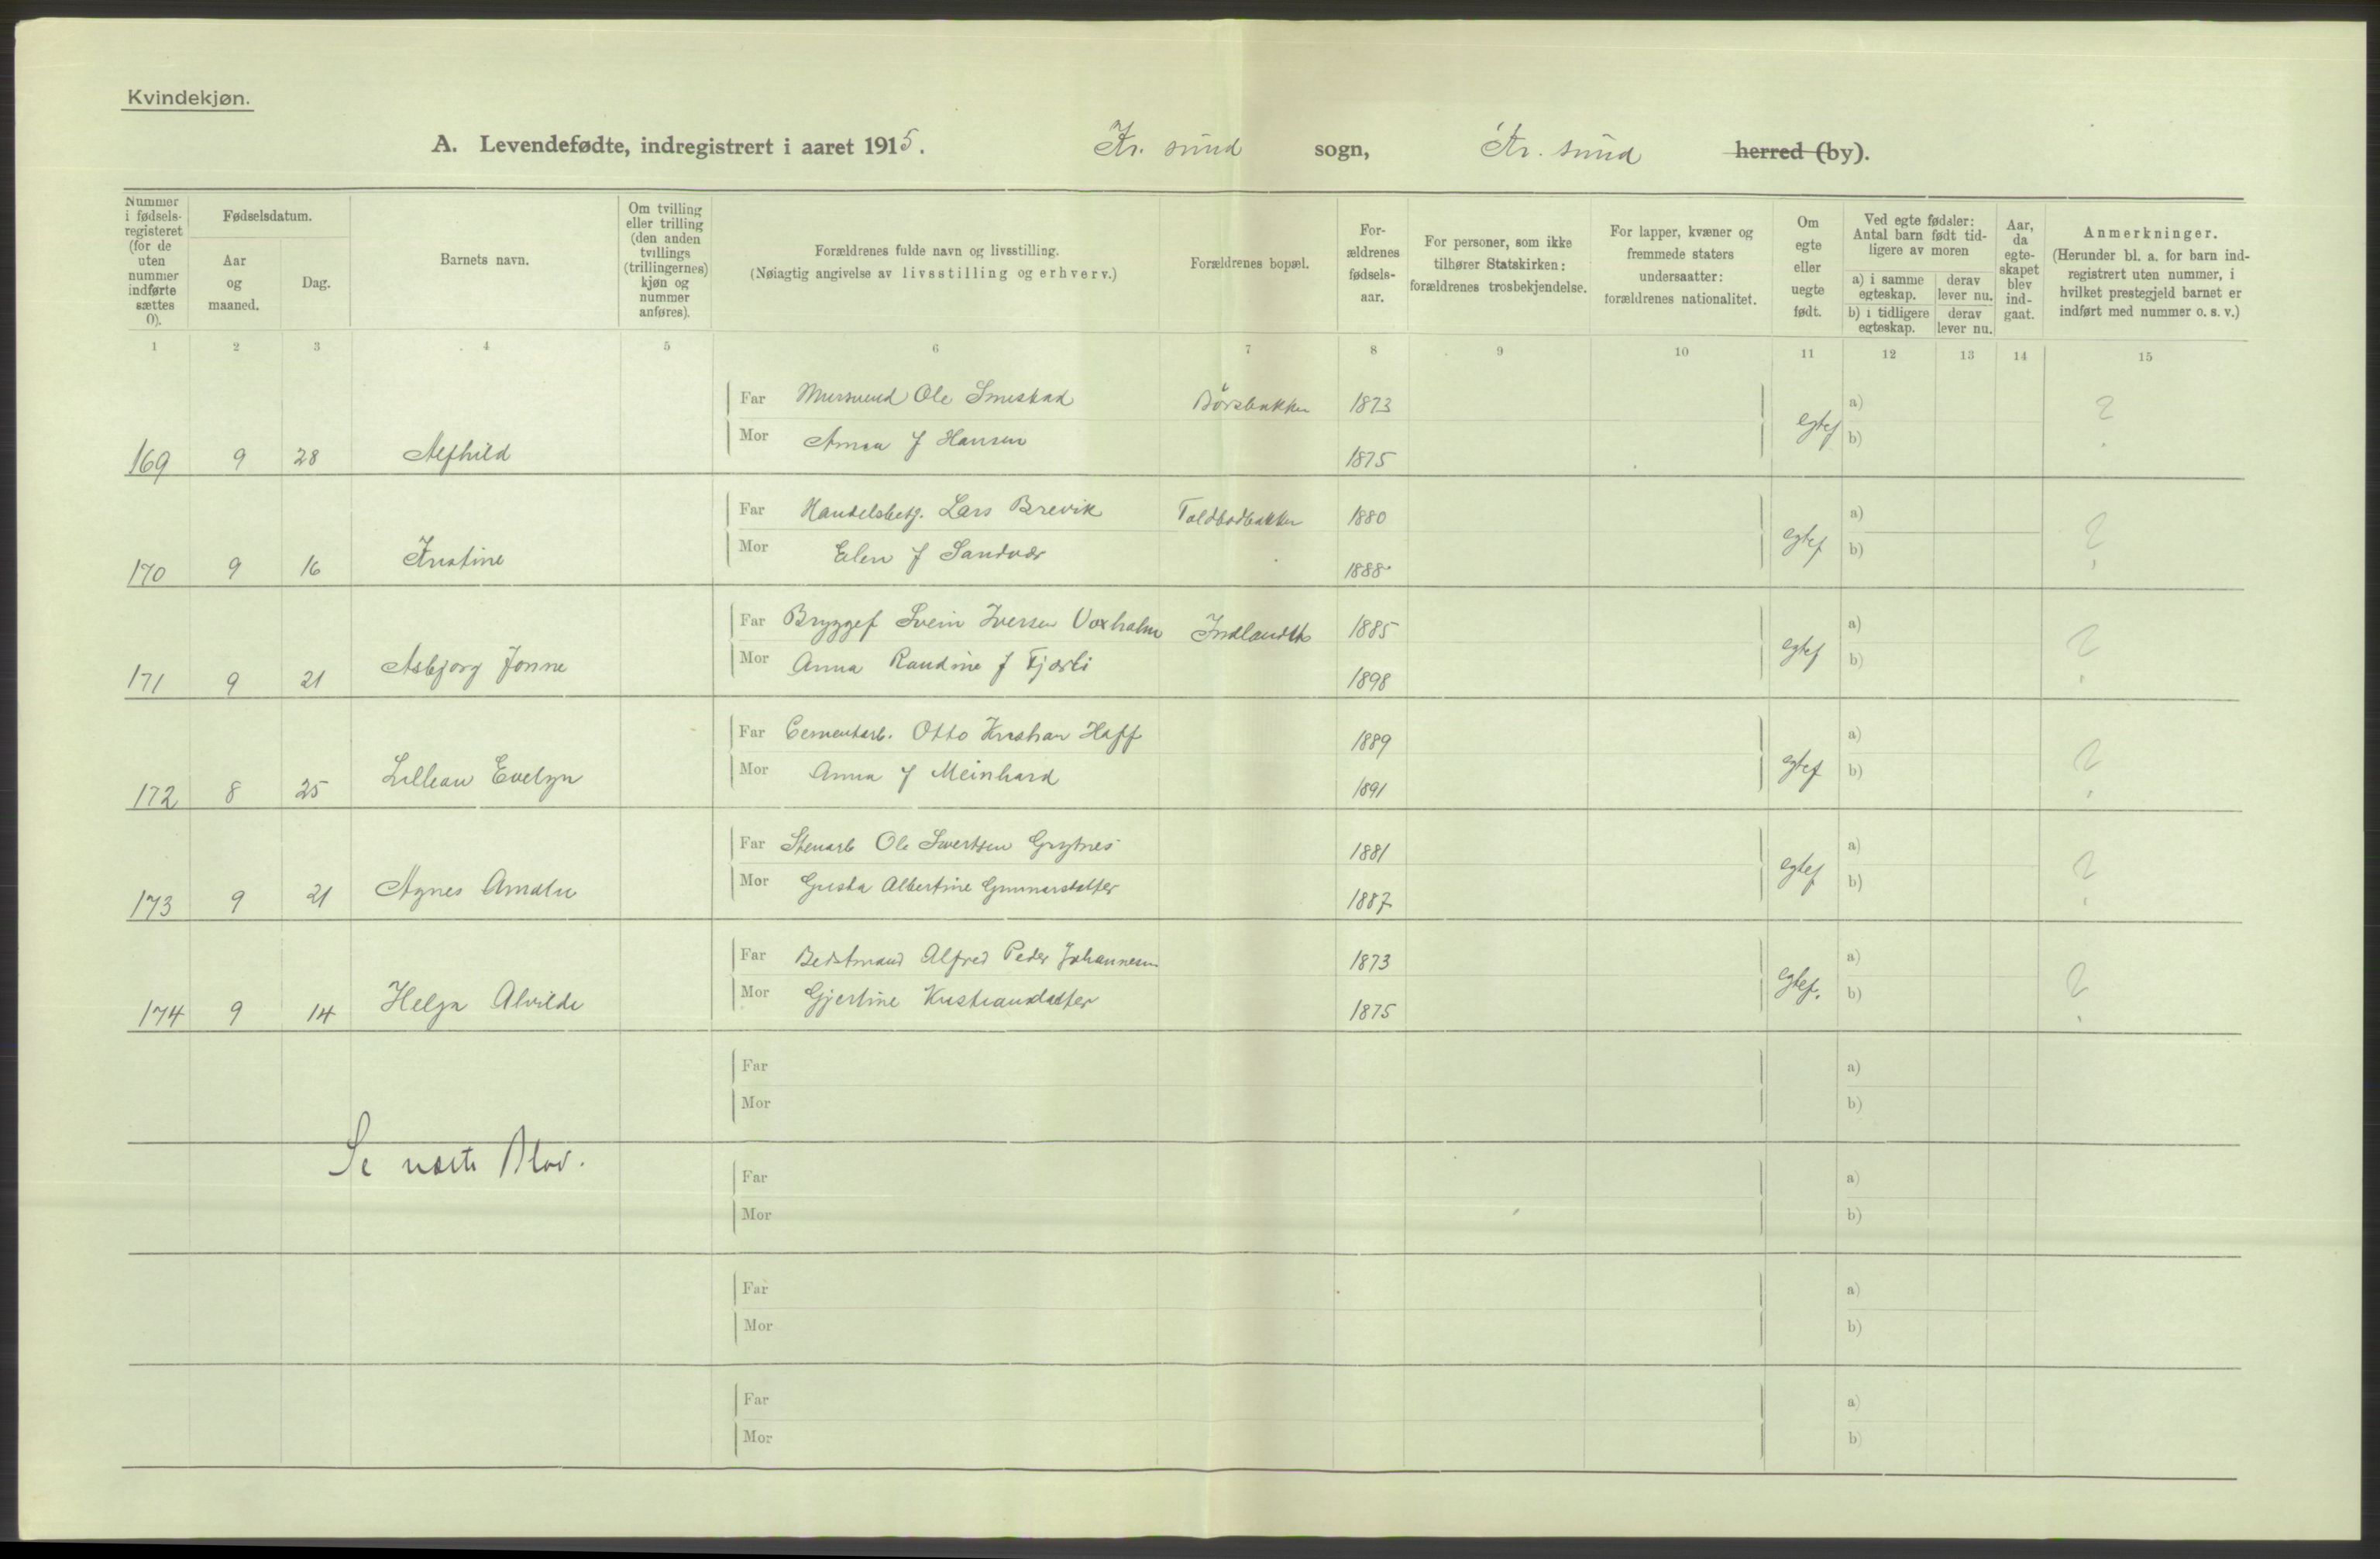 Kvindekjøn.
A. Levendefødte, indregistrert i aaret 1915. Kr. sund sogn, Kr. sund herred (by).
Nummer i fødselsregisteret (for de uten nummer indførte sættes 0).
Fødselsdatum.
Aar og maaned.
Dag.
Barnets navn.
Om tvilling eller trilling (den anden tvillings (trillingernes) kjøn og nummer anføres).
Forældrenes fulde navn og livsstilling.
(Nøiagtig angivelse av livsstilling og erhverv.)
Forældrenes bopæl.
Forældrenes fødselsaar.
For personer, som ikke tilhører Statskirken: forældrenes trosbekjendelse.
For lapper, kvæner og fremmede staters undersaatter: forældrenes nationalitet.
Om egte eller uegte født.
Ved egte fødsler: Antal barn født tidligere av moren
a) i samme egteskap. derav lever nu.
b) i tidligere egteskap. derav lever nu.
Aar, da egteskapet blev indgaat.
Anmerkninger.
(Herunder bl. a. for barn indregistrert uten nummer, i hvilket prestegjeld barnet er indført med nummer o. s. v.)
1 2 3 4 5 6 7 8 9 10 11 12 13 14 15
Far Ole Smestad Børsbakken 1873 a) ?
Mor Anna f Hansen egtef b)
169 9 28 Alfhild 1875
Far Handelsbetj. Lars Brevik Toldbodbakken 1880 a) ?
Mor Elen f Sandvær egtef b)
170 9 16 Kristine 1888
Far Bryggef Svein Iversen Voxholm Indlandet 1885 a) ?
Mor Anna Randine f Fjærli egtef b)
171 9 21 Asbjørg Jonne 1898
Far Cementarb. Otto Kristian Hoff 1889 a) ?
Mor Anna f Meinhard egtef b)
172 8 25 Lillean Evelyn 1891
Far Stenarb Ole Sivertsen Grytnes 1881 a) ?
Mor Gusta Albertine Gunnarsdatter egtef b)
173 9 21 Agnes 1887
Far Bedstmand Alfred Peder Johannesen 1873 a) ?
Mor Gjertine Kristiansdatter egtef. b)
174 9 14 Helga Alvilde 1875
Far a)
Mor b)
Se næste Blad.
Far a)
Mor b)
Far a)
Mor b)
Far a)
Mor b)